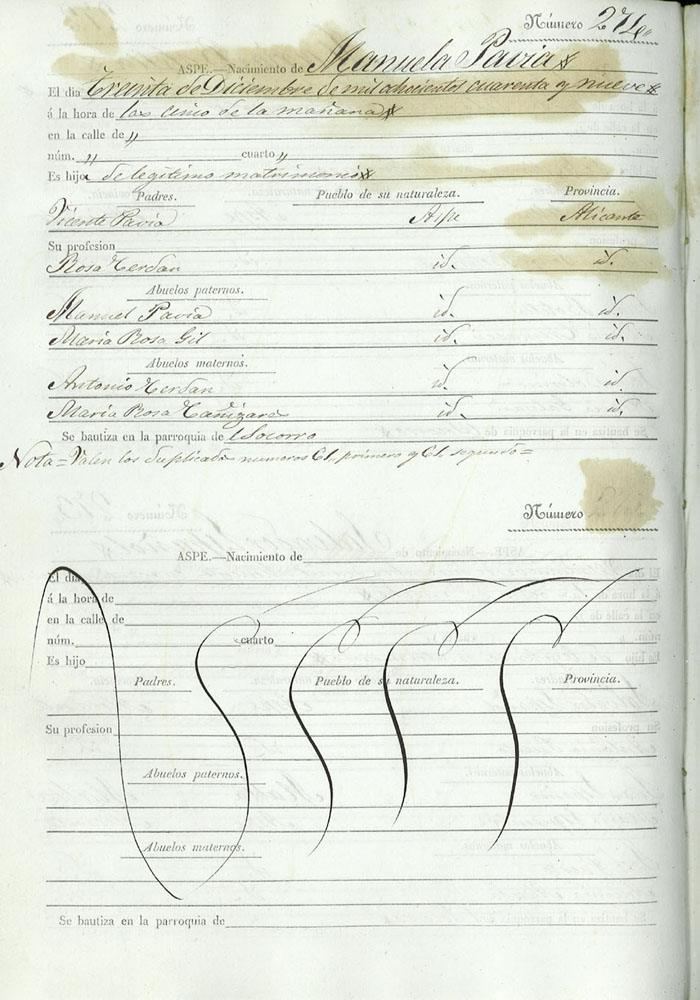 Número 274
ASPE.—Nacimiento de Manuela Pavia
El dia treinta de Diciembre de mil ochocientos cuarenta y nueve
á la hora de las cinco de la mañana
en la calle de „
núm. „ cuarto „
Es hija de legitimo matrimonio
Padres. Pueblo de su naturaleza. Provincia.
Vicente Pavia Aspe Alicante
Su profesion
Rosa Cerdan id. id.
Abuelos paternos.
Manuel Pavia id. id.
Maria Rosa Gil id. id.
Abuelos maternos.
Antonio Cerdan id. id.
Maria Rosa Cañizares id. id.
Se bautiza en la parroquia de l Socorro
Nota = Valen los duplicados numeros 61, primero y 61, segundo =
Número
ASPE.—Nacimiento de
El dia
á la hora de
en la calle de
núm. cuarto
Es hijo
Padres. Pueblo de su naturaleza. Provincia.
Su profesion
Abuelos paternos.
Abuelos maternos.
Se bautiza en la parroquia de